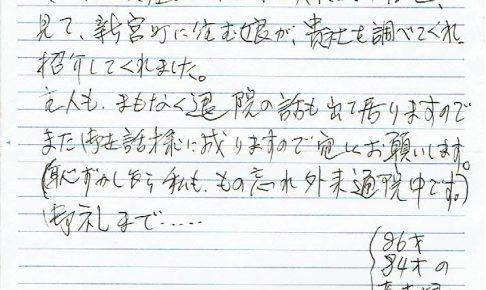 見て、新宮町に住む娘が、貴社を調べてくれ
紹介してくれました。
主人も、まもなく退院の話も出て居りますので
また御世話様に成りますので宜しくお願いします。
(恥ずかしながら私も、もの忘れ外来通院中です。)
御礼まで……
86才
84才の